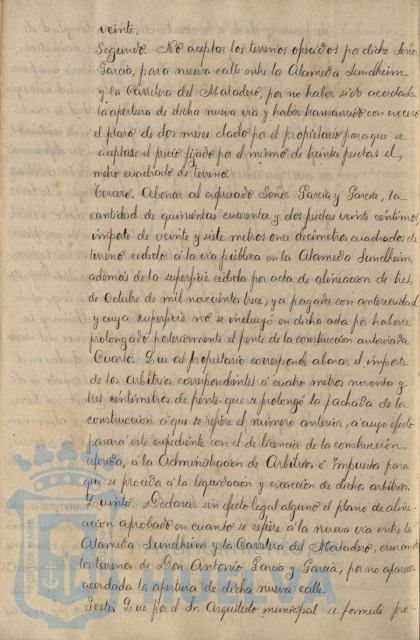 veinte.
Segundo. No aceptar los terrenos ofrecidos por dicho Señor
García, para nueva calle entre la Alameda Sundheim
y la Carretera del Matadero, por no haber sido acordada
la apertura de dicha nueva vía y haber transcurrido con exceso
el plazo de dos meses dado por el propietario para que se
aceptase el precio fijado por el mismo de treinta pesetas el
metro cuadrado de terreno.
Tercero. Abonar al expresado Señor García y García, la
cantidad de quinientas cuarenta y dos pesetas veinte céntimos,
importe de veinte y siete metros once decímetros cuadrados de
terreno cedido á la vía pública en la Alameda Sundheim,
además de la superficie cedida por acta de alineacion de tres
de Octubre de mil novecientos trece, ya pagada con anterioridad
y cuya superficie no se incluyó en dicha acta por haberse
prolongado posteriormente el frente de la construcción autorizada
Cuarto. Que al propietario corresponde abonar el importe
de los arbitrios correspondientes á cuatro metros noventa y
tres centímetros de frente que se prolongó la fachada de la
construcción á que se refiere el número anterior, á cuyo efecto
pasará este expediente con el de licencia de la construcción
referida, á la Administracion de Arbitrios é Impuestos para
que se proceda á la liquidación y exacción de dichos arbitrios.
Quinto. Declarar sin efecto legal alguno el plano de aline-
acion aprobado en cuanto se refiere á la nueva vía entre la
Alameda Sundheim y la Carretera del Matadero, cruzando
los terrenos de Don Antonio García y García, por no aparecer
acordada la apertura de dicha nueva calle.
Sesto. Que por el Sr. Arquitecto municipal se formule pro-